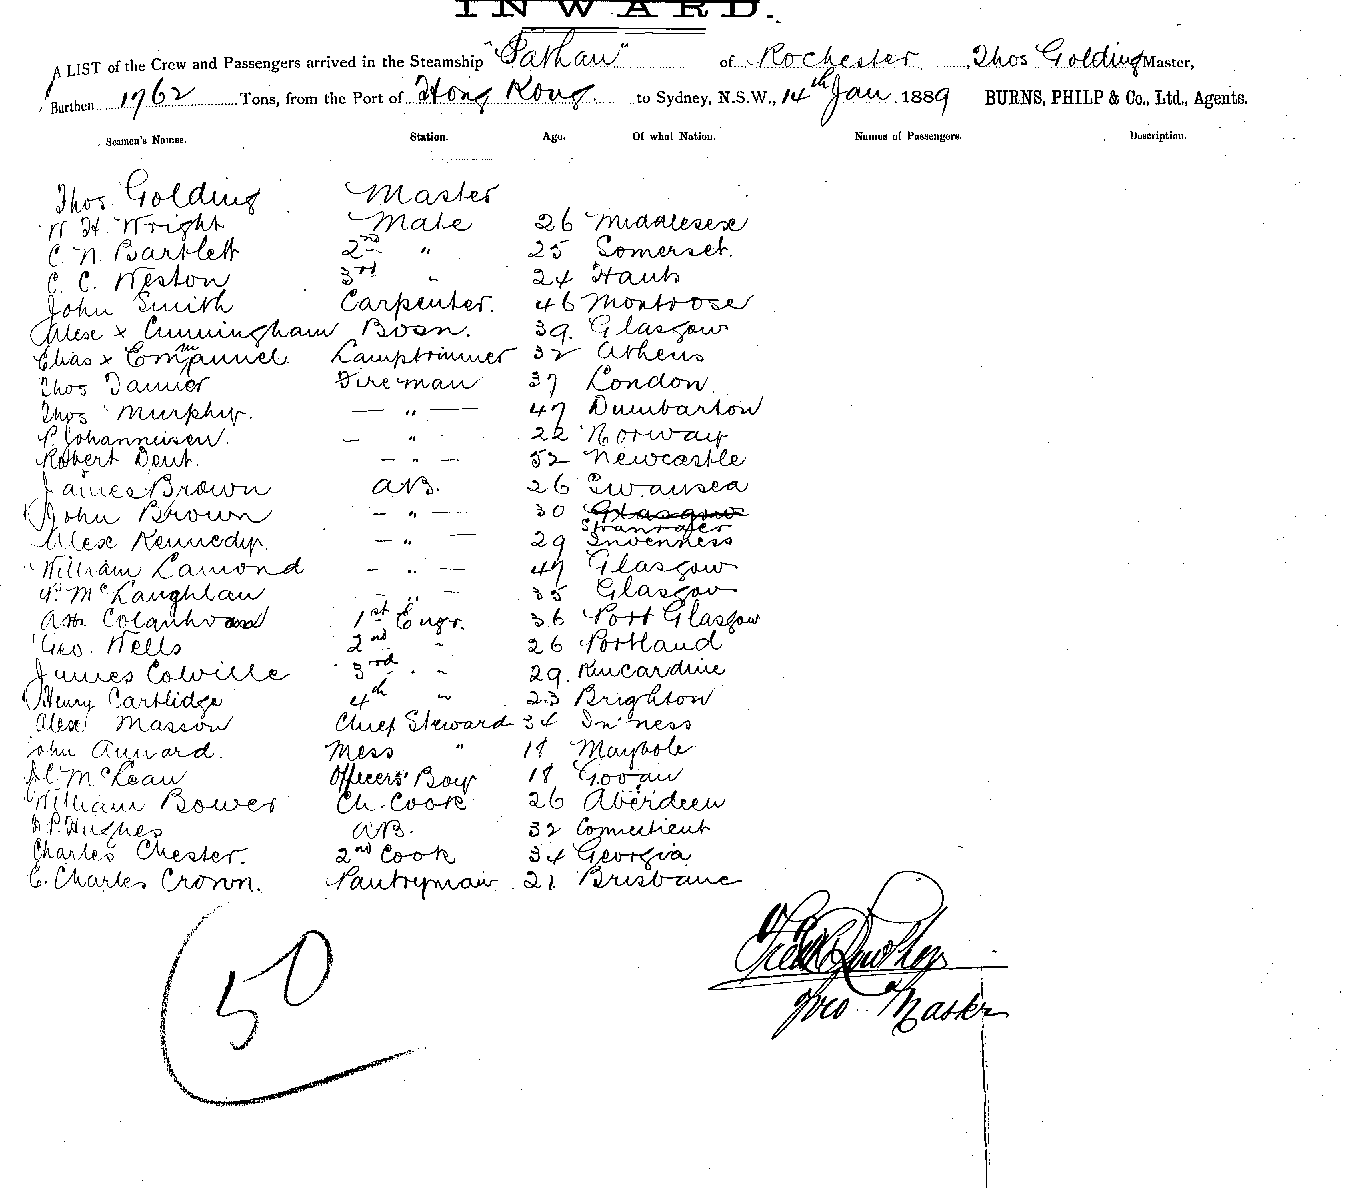 INWARD.
A LIST of the Crew and Passengers arrived in the Steamship "Pathan" of Rochester, Thos Golding Master,
Burthen 1762 Tons, from the Port of Hong Kong to Sydney, N.S.W., 14th Jan 1889 BURNS, PHILP & Co., Ltd., Agents.
Seamen's Names. Station. Age. Of what Nation. Names of Passengers. Description.
Thos Golding Master
W H Wright Mate 26 Middlesex
C. N. Bartlett 2nd " 25 Somerset.
C. C. Weston 3rd " 24 Hants
John Smith Carpenter. 46 Montrose
Alex x Cunningham Bosn. 39. Glasgow
Elias x Emmanuel Lamptrimmer 32 Athens
Thos Fireman 37 London
Thos Murphy. — " — 47 Dumbarton
P. Johanneisen. — " 22 Norway
Robert Dent. — " — 52 Newcastle
James Brown AB. 26 Swansea
John Brown — " — 30 Glasgow Stranraer
Alex Kennedy. — " — 29 Inverness
William Lamond — " — 47 Glasgow
McLaughlan — " — 35 Glasgow
1st Engr. 36 Port Glasgow
Geo. Wells 2nd " 26 Portland
James Colville 3rd " 29. Kincardine
Henry Cartlidge 4th " 23 Brighton
Alex Masson Chief Steward 34 In'ness
John Annard. Mess " 18 Maybole
McLean Officers' Boy 18 Govan
William Bower Ch. Cook 26 Aberdeen
P. Hughes AB. 32 Connecticut
Charles Chester. 2nd Cook 34 Georgia
C. Charles Crown. Pantryman 21 Brisbane
50
pro Master